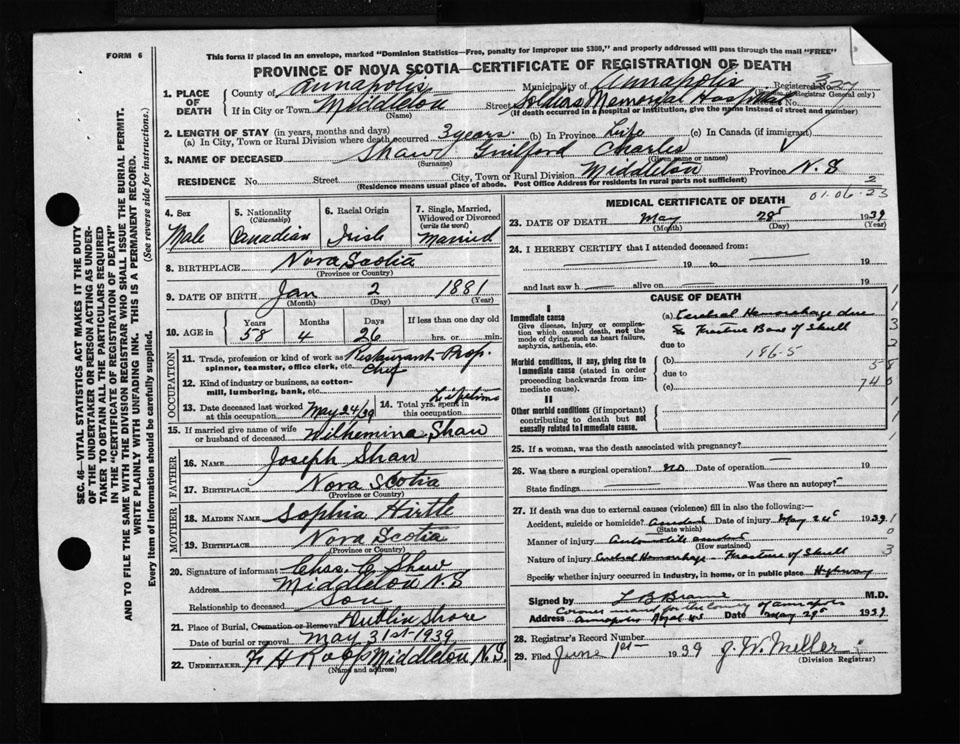 FORM 6
This form if placed in an envelope, marked "Dominion Statistics—Free, penalty for improper use $300," and properly addressed will pass through the mail "FREE"
PROVINCE OF NOVA SCOTIA—CERTIFICATE OF REGISTRATION OF DEATH
1. PLACE OF DEATH County of Annapolis Municipality of Annapolis Registered No.
(Registrar General only)
If in City or Town Middleton Street Soldiers Memorial Hospital
(Name) (If death occurred in a hospital or institution, give the name instead of street and number)
2. LENGTH OF STAY (in years, months and days)
(a) In City, Town or Rural Division where death occurred 3 years. (b) In Province Life (c) In Canada (if immigrant)
3. NAME OF DECEASED Shaw Guilford Charles
(Surname) (Given name or names)
RESIDENCE No. Street City, Town or Rural Division Middleton Province N.S
(Residence means usual place of abode. Post Office Address for residents in rural parts not sufficient)
4. Sex Male
5. Nationality (Citizenship) Canadian
6. Racial Origin Irish
7. Single, Married, Widowed or Divorced (write the word) Married
8. BIRTHPLACE Nova Scotia
(Province or Country)
9. DATE OF BIRTH Jan 2 1881
(Month) (Day) (Year)
10. AGE in Years 58 Months 4 Days 26 If less than one day old hrs. or min.
OCCUPATION
11. Trade, profession or kind of work as spinner, teamster, office clerk, etc. Restaurant Prop. Chef
12. Kind of industry or business, as cotton-mill, lumbering, bank, etc.
13. Date deceased last worked at this occupation May 24/39
14. Total yrs. spent in this occupation Lifetime
15. If married give name of wife or husband of deceased Wilhemina Shaw
FATHER
16. NAME Joseph Shaw
17. BIRTHPLACE Nova Scotia
(Province or Country)
MOTHER
18. MAIDEN NAME Sophia Hirtle
19. BIRTHPLACE Nova Scotia
(Province or Country)
20. Signature of informant Chas. C Shaw
Address Middleton N.S
Relationship to deceased Son
21. Place of Burial, Cremation or Removal Dublin Shore
Date of burial or removal May 31st-1939
22. UNDERTAKER F H Rapp Middleton N.S.
(Name and address)
MEDICAL CERTIFICATE OF DEATH
01.06.23
2
23. DATE OF DEATH May 28 1939
(Month) (Day) (Year)
24. I HEREBY CERTIFY that I attended deceased from:
19 to 19
and last saw h alive on 19
CAUSE OF DEATH
I
Immediate cause
Give disease, injury or complication which caused death, not the mode of dying, such as heart failure, asphyxia, asthenia, etc.
(a) Cerebral Hemorrhage due to Fracture Base of Skull
due to
186-5
Morbid conditions, if any, giving rise to immediate cause (stated in order proceeding backwards from immediate cause).
(b)
due to
(c)
II
Other morbid conditions (if important) contributing to death but not causally related to immediate cause.
25. If a woman, was the death associated with pregnancy?
26. Was there a surgical operation? no Date of operation 19
State findings Was there an autopsy?
27. If death was due to external causes (violence) fill in also the following:—
Accident, suicide or homicide? Accident Date of injury May 24 1939
(State which)
Manner of injury Automobile accident
(How sustained)
Nature of injury Cerebral Hemorrhage - Fracture of Skull
Specify whether injury occurred in industry, in home, or in public place Highway
Signed by L B Braine M.D.
Coroner in and for the County of Annapolis
Address Annapolis Royal N.S Date May 29 1939
28. Registrar's Record Number
29. Filed June 1st 1939 J. W. Miller
(Division Registrar)
SEC. 46—VITAL STATISTICS ACT MAKES IT THE DUTY
OF THE UNDERTAKER OR PERSON ACTING AS UNDER-
TAKER TO OBTAIN ALL THE PARTICULARS REQUIRED
IN THE "CERTIFICATE OF REGISTRATION OF DEATH"
AND TO FILE THE SAME WITH THE DIVISION REGISTRAR WHO SHALL ISSUE THE BURIAL PERMIT.
WRITE PLAINLY WITH UNFADING INK. THIS IS A PERMANENT RECORD.
Every item of information should be carefully supplied. (See reverse side for instructions.)